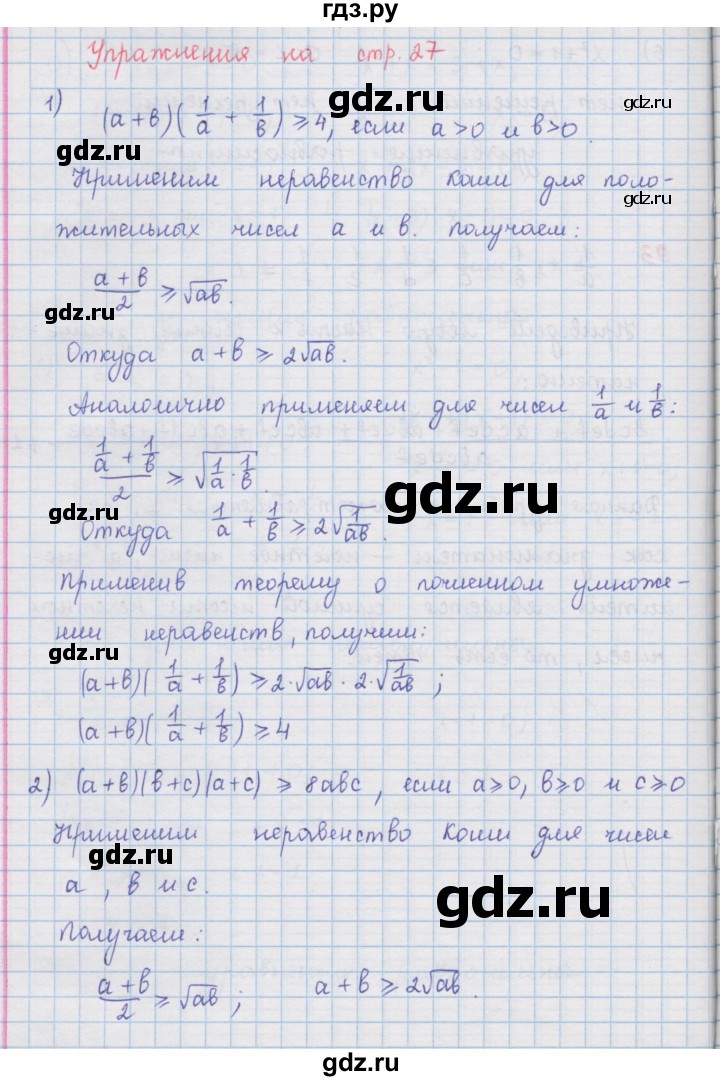 гдз.ру
Упражнения на стр. 27
1) (a+в)(1/a + 1/в) ≥ 4, если a>0 и в>0.
gdz.ru
gdz.ru
gdz.ru
Применим неравенство Коши для поло-
жительных чисел a и в. Получаем:
(a+в)/2 ≥ √aв.
gdz.ru
gdz.ru
Откуда a+в ≥ 2√aв.
Аналогично применяем для чисел 1/a и 1/в:
(1/a + 1/в)/2 ≥ √(1/a · 1/в).
gdz.ru
gdz.ru
Откуда 1/a + 1/в ≥ 2√(1/aв).
Применив теорему о почленном умноже-
нии неравенств, получим:
gdz.ru
(a+в)(1/a + 1/в) ≥ 2·√aв · 2·√(1/aв);
(a+в)(1/a + 1/в) ≥ 4
2) (a+в)(в+c)(a+c) ≥ 8aвc, если a≥0, в≥0 и c≥0
Применим неравенство Коши для чисел
gdz.ru
a, в и c.
gdz.ru
Получаем:
(a+в)/2 ≥ √aв; a+в ≥ 2√aв.
gdz.ru
gdz.ru